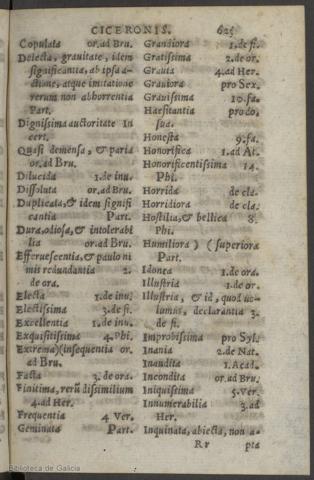 CICERONIS. 625
Copulata or.ad Bru.
Delecta, grauitate, idem
significantia, ab ipsa a-
ctione, atque imitatione
rerum non abhorrentia
Part.
Dignissima auctoritate In
cert.
Quasi demensa, & paria
or.ad Bru.
Dilucida 1.de inu.
Dissoluta or.ad Bru.
Duplicata, & idem signifi
cantia Part.
Dura, odiosa, & intolerabi
lia or.ad Bru.
Efferuescentia, & paulo ni
mis redundantia 2.
de ora.
Electa 1.de inu.
Electissima 3.de fi.
Excellentia 1.de inu.
Exquisitissima 4.Phi.
Extrema)(insequentia or.
ad Bru.
Facta 3.de ora.
Finitima, rerū dissimilium
4.ad Her.
Frequentia 4 Ver.
Geminata Part.
Grandiora 1.de fi.
Gratissima 2.de or.
Grauia 4.ad Her.
Grauiora pro Sex.
Grauissima 10.fa.
Haesitantia pro do.
sua.
Honesta 9.fa.
Honorifica 1.ad At.
Honorificentissima 14.
Phi.
Horrida de cla.
Horridiora de cla.
Hostilia, & bellica 8.
Phi.
Humiliora)(superiora
Part.
Idonea 1.de ora.
Illustria 1.de or.
Illustria, & id, quod uo-
lumus, declarantia 3.
de fi.
Improbissima pro Syl.
Inania 2.de Nat.
Inaudita 1.Acad.
Incondita or.ad Bru.
Iniquissima 5.Ver.
Innumerabilia 3.ad
Her.
Inquinata, abiecta, non a-
Rr pta
Biblioteca de Galicia